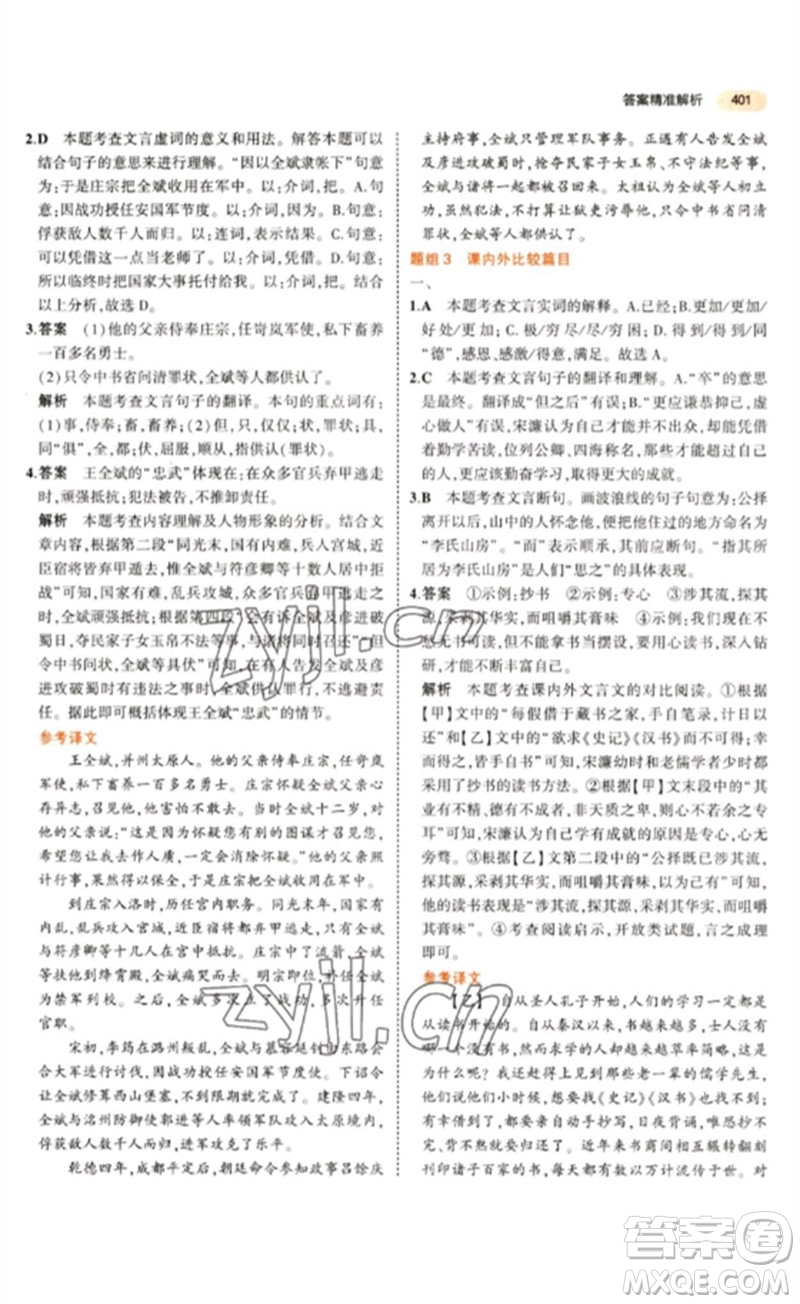 答案精准解析 401
2.D 本题考查文言虚词的意义和用法。解答本题可以
结合句子的意思来进行理解。“因以全斌隶帐下”句意
为:于是庄宗把全斌收用在军中。以:介词,把。A.句
意:因战功授任安国军节度。以:介词,因为。B.句意:
俘获敌人数千人而归。以:连词,表示结果。C.句意:
可以凭借这一点当老师了。以:介词,凭借。D.句意:
所以临终时把国家大事托付给我。以:介词,把。根据
以上分析,故选 D。
3.答案 (1)他的父亲侍奉庄宗,任岢岚军使,私下畜养
一百多名勇士。
(2)只令中书省问清罪状,全斌等人都供认了。
解析 本题考查文言句子的翻译。本句的重点词有:
(1)事,侍奉;畜,畜养;(2)但,只,仅仅;状,罪状;具,
同“俱”,全,都;伏,屈服,顺从,指供认(罪状)。
4.答案 王全斌的“忠武”体现在:在众多官兵弃甲逃走
时,顽强抵抗;犯法被告,不推卸罪责。
解析 本题考查内容理解及人物形象的分析。结合文
章内容,根据第二段“同光末,国有内难,兵入宫城,近
臣宿将皆弃甲遁去,惟全斌与符彦卿等十数人居中拒
战”可知,国家有难,乱兵攻城,众多官兵弃甲逃走时,全
斌,顽强抵抗;根据第四段“
蜀日,夺民家子女玉帛不法等事,与诸将同时召还”“但
令中书问状,全斌等具伏”可知,在有人告发全斌及彦
进攻破蜀时有违法之事时,全斌供认罪行,不推卸责
任。据此即可概括体现王全斌“忠武”的情节。
参考译文
王全斌,并州太原人。他的父亲侍奉庄宗,任岢岚
军使,私下畜养一百多名勇士。庄宗怀疑全斌父亲心
存异志,召见他,他害怕不敢前往。全斌当时十二岁,对
他的父亲说:“这是因为怀疑您有别的图谋才召见您,
希望您让我去作人质,一定会消除怀疑。”他的父亲照
计行事,果然得以保全,于是庄宗把全斌收用在军中。
到庄宗入洛时,历任宫内职务。同光末年,国家有
内乱,乱兵攻入宫城,近臣宿将都弃甲逃走,只有全斌
与符彦卿等十几人在宫中抵抗。庄宗中了流箭,全斌
扶他到绛霄殿,全斌痛哭而去。明宗即位,
为禁军列校。
官职。
宋初,李筠在潞州叛乱,全斌与慕容延钊由东路会
合大军进讨,因战功授任安国军节度使。下诏令
全斌修葺西山堡寨,不到限期就完成了。建隆四年,
全斌与洺州防御使郭进等人率领军队攻入太原境内,
俘获敌人数千人而归,进军攻克了乐平。
乾德四年,成都平定后,朝廷命令参知政事吕馀庆
主持府事,全斌只管理军队事务。正遇有人告发全斌
及彦进攻破蜀时,抢夺民家子女玉帛、不守法纪等事,
全斌与诸将一同都被召回来。太祖认为全斌等人初立
功,虽然犯法,不打算让狱吏污辱他,只令中书省问清
罪状,全斌等人都供认了。
题组 3 课内外比较篇目
一、
1.A 本题考查文言实词的解释。A.已经;B.更加/更加/
好处/更加;C.极/穷尽/尽/穷困;D.得到/得到/同
“德”,感恩、感激/得意,满足。故选 A。
2.C 本题考查文言句子的翻译和理解。A.“卒”的意思
是最终。翻译成“但之后”有误;B.“更应谦恭抑己,虚
心做人”有误,宋濂认为自己才能并不出众,却能因为
勤学苦读,位列公卿、四海称名,那么才能超过自己的
人更应该勤奋学习。D.最后一句翻译有误。
3.B 本题考查文言断句。画波浪线的句子句意为:公择
离开以后,山中的人怀念他,便把他住过的房子称为
“李氏山房”。“而”表示承接,连接前后两个句子。“指
其所居”是人们“思之”的具体表现。
4.答案 ①示例:抄书 ②示例:专心 ③涉其流,探其
源,采剥其华实,而咀嚼其膏味 ④示例:今天我们不
愁无书可读,但不能拿书当摆设,要用心读书,深入钻
研,才能不断丰富自己。
解析 本题考查课内外文言文的对比阅读。①根据
【甲】文中的“每假借于藏书之家,手自笔录,计日以
还”与【乙】文中的“欲求《史记》《汉书》而不可得,幸而
得之,皆手自书”可知,宋濂幼时和老儒学者少时都采
用了抄书的读书方法。②根据【甲】文末段中的“其
业有不精、德有不成者,非天质之卑,则心不若余之专
耳”可知,宋濂认为学习有成就的原因是专心,心无
旁骛。③根据【乙】文第二段中的“公择既已涉其流,
探其源,采剥其华实,而咀嚼其膏味”可知,李公择
的读书表现是“涉其流,探其源,采剥其华实,而咀嚼其
膏味”。④考查阅读启示,开放类试题,言之成理
即可。
参考译文
【乙】 自从圣人孔子开始,人们的学习一定都是
从读书开始的。自从秦汉以来,书越来越多,
人们的学习态度却越来越草率简略。
我还赶得上见到一些老一辈的儒学先生,
他们说他们小的时候,想要找《史记》《汉书》都很难得
到,有幸得到,都亲自动手抄写,日夜背诵,唯恐
来不及。近年来书商们相互辗转翻刻
刊印诸子百家的书,每天都有以万计流传于世。对